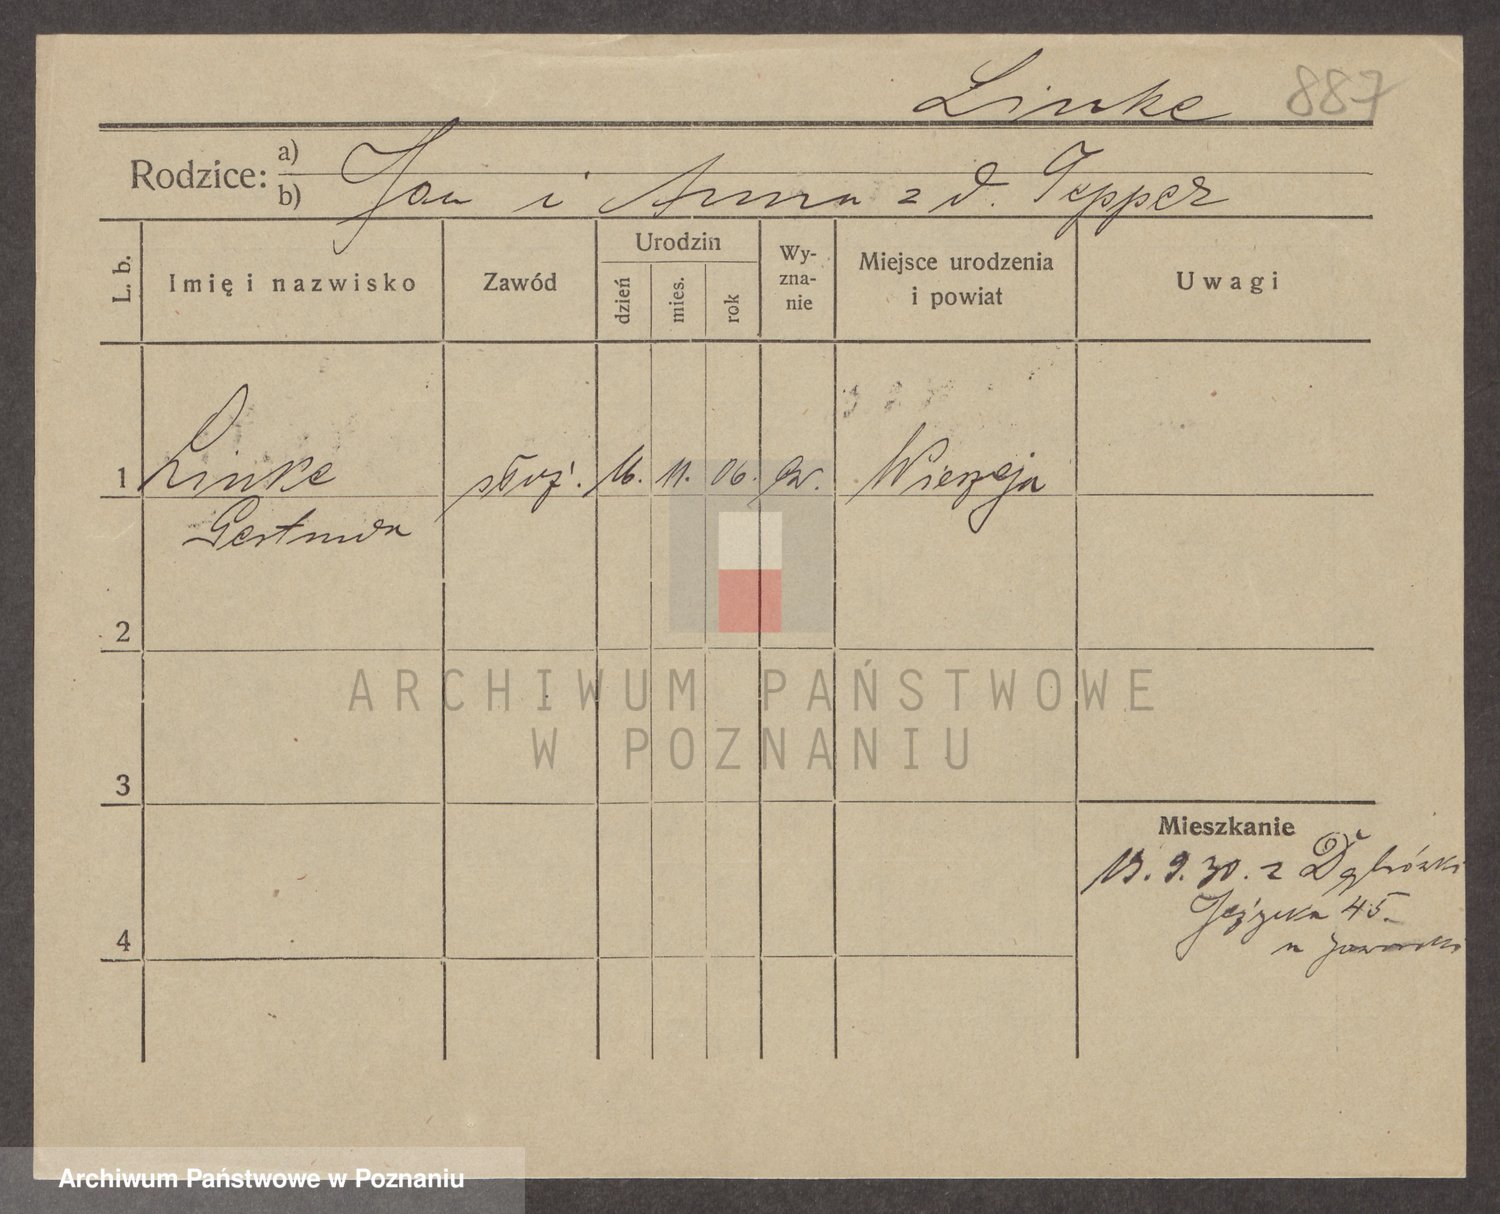 Linke 887
Rodzice: a) b) Jan i Anna z d. Tepper
L. b.
Imię i nazwisko
Zawód
Urodzin
dzień
mies.
rok
Wy-
zna-
nie
Miejsce urodzenia
i powiat
Uwagi
1 Linke służ. 16. 11. 06. ew. Wierzeja
Gertruda
2
ARCHIWUM PAŃSTWOWE
W POZNANIU
3
Mieszkanie
9. 30. z Dąbrówki
45
u
4
Archiwum Państwowe w Poznaniu